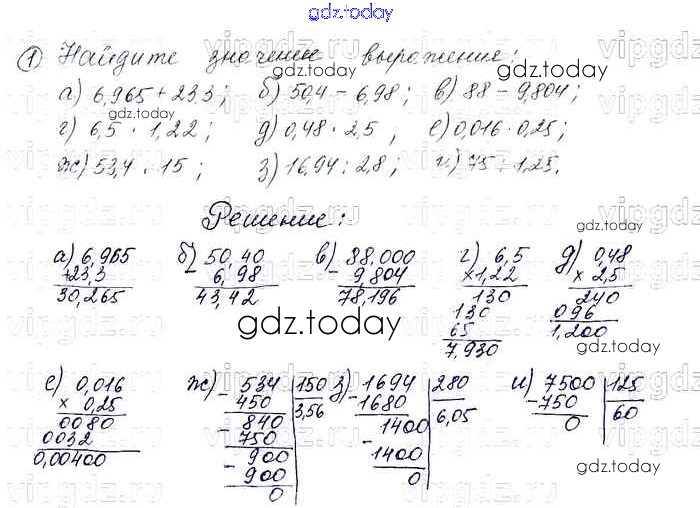 gdz.today
① Найдите значение выражение:
а) 6,965 + 23,3; б) 50,4 - 6,98; в) 88 - 9,804;
gdz.today
г) 6,5 · 1,22; д) 0,48 · 2,5, е) 0,016 · 0,25;
gdz.today
ж) 53,4 : 15; з) 16,94 : 2,8; и) 75 : 1,25.
Решение:
а) 6,965 б) 50,40 в) 88.000 г) 6,5 д) 0,48
+23,3 - 6,98 - 9,804 ×1,22 × 2,5
30,265 43,42 78,196 130 240
gdz.today
130 096
65 1,200
7.930
gdz.today
е) 0,016 ж) - 534 |150 з) - 1694 |280 и) - 7500 |125
× 0,25 450 3,56 1680 6,05 750 60
0080 - 840 - 1400 0
0032 750 1400
0,00400 - 900 0
900
0
gdz.today
vipgdz.ru